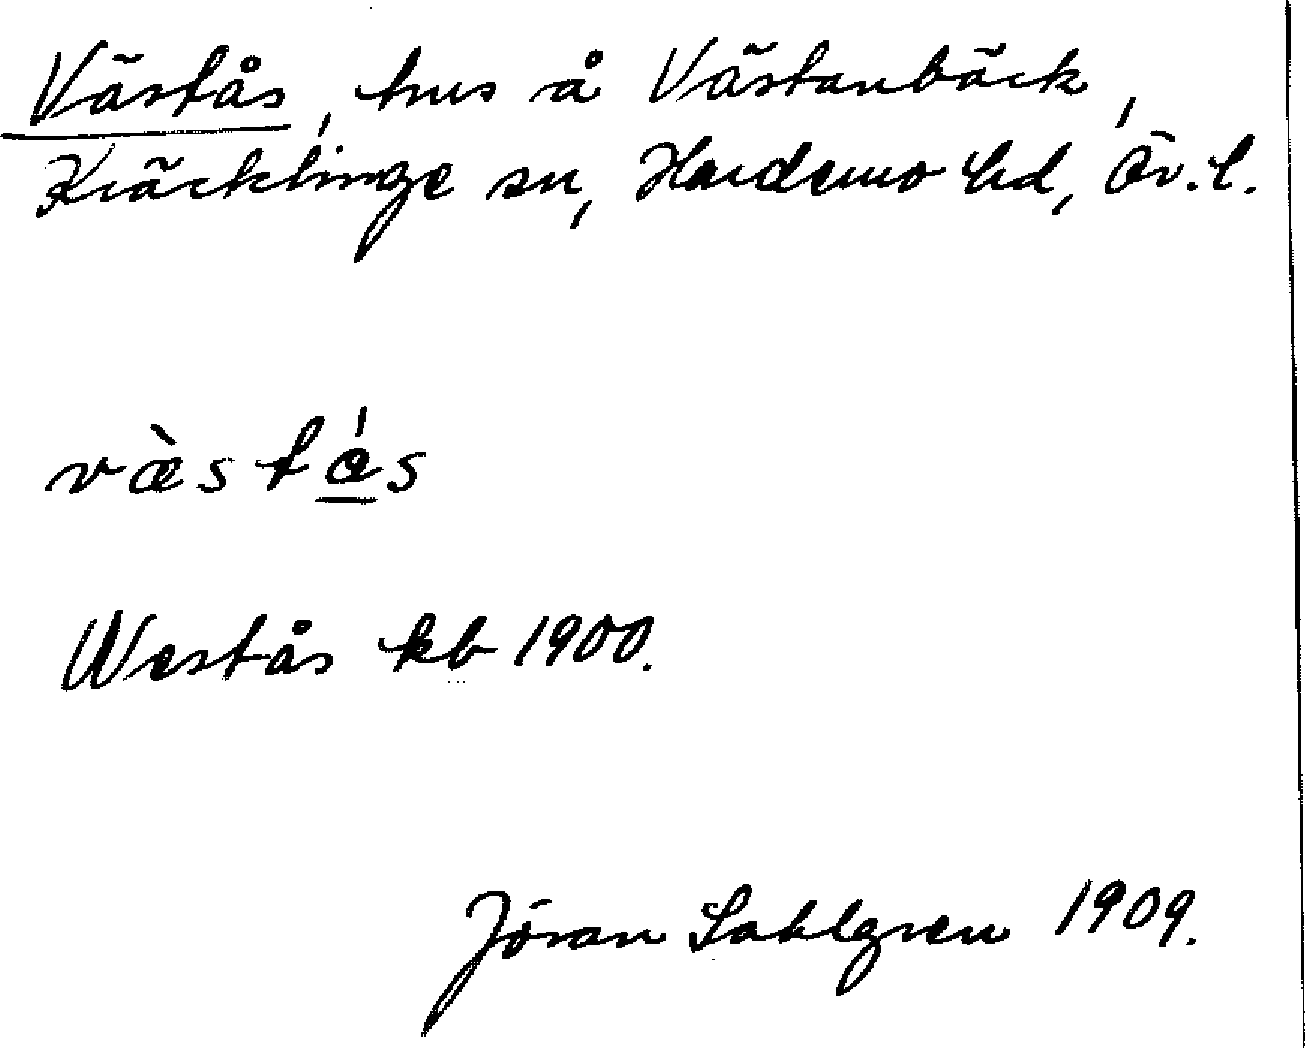 Västås, hus å Västanbäck,
Kräcklinge sn, Hardemo hd, Ör.l.
væ̀stǻs
Westås kb 1900.
Jöran Sahlgren 1909.